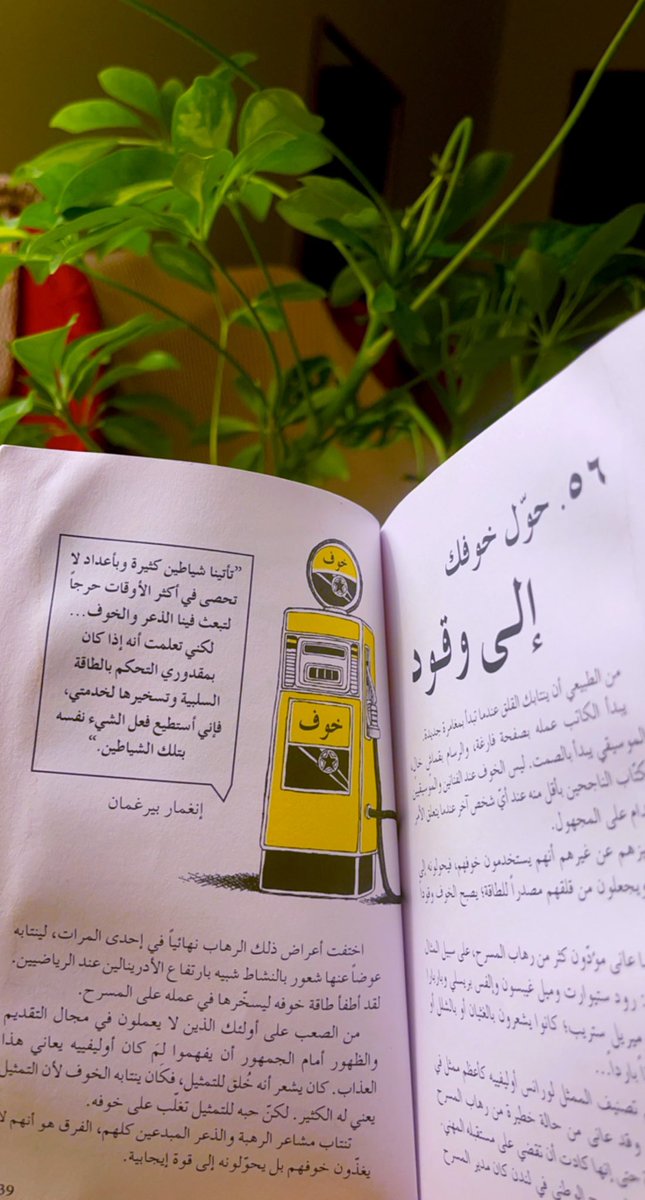 ٥٦. حوّل خوفك
إلى وقود
من الطبيعي أن ينتابك القلق عندما تبدأ بمغامرة جديدة.
يبدأ الكاتب عمله بصفحة فارغة، والرسام بقماش خالٍ،
الموسيقي يبدأ بالصمت. ليس الخوف عند الفنانين والموسيقيين
كتّاب الناجحين بأقل منه عند أيّ شخص آخر عندما يتعلق الأمر
دام على المجهول.
يزهم عن غيرهم أنهم يستخدمون خوفهم، فيحولونه إلى
ويجعلون من قلقهم مصدراً للطاقة؛ يصبح الخوف وقوداً
ما عانى مؤدّون كثر من رهاب المسرح، على سبيل المثال
: رود ستيوارت وميل غيبسون وإلفس بريسلي وباربارا
ميريل ستريب؛ كانوا يشعرون بالغثيان أو بالشلل أو
اً بارداً...
تصنيف الممثل لورانس أوليفييه كأعظم ممثل في
وقد عانى من حالة خطيرة من رهاب المسرح
حتى إنها كادت أن تقضي على مستقبله المهني.
الوطني في لندن كان مدير المسرح
”تأتينا شياطين كثيرة وبأعداد لا
تحصى في أكثر الأوقات حرجاً
لتبعث فينا الذعر والخوف...
لكني تعلمت أنه إذا كان
بمقدوري التحكم بالطاقة
السلبية وتسخيرها لخدمتي،
فإني أستطيع فعل الشيء نفسه
بتلك الشياطين.“
إنغمار بيرغمان
خوف
خوف
اختفت أعراض ذلك الرهاب نهائياً في إحدى المرات، لينتابه
عوضاً عنها شعور بالنشاط شبيه بارتفاع الأدرينالين عند الرياضيين.
لقد أطفأ طاقة خوفه ليسخّرها في عمله على المسرح.
من الصعب على أولئك الذين لا يعملون في مجال التقديم
والظهور أمام الجمهور أن يفهموا لمَ كان أوليفييه يعاني هذا
العذاب. كان يشعر أنه خُلق للتمثيل، فكان ينتابه الخوف لأن التمثيل
يعني له الكثير. لكنّ حبه للتمثيل تغلّب على خوفه.
تنتاب مشاعر الرهبة والذعر المبدعين كلهم، الفرق هو أنهم لا
يغذّون خوفهم بل يحوّلونه إلى قوة إيجابية.
39